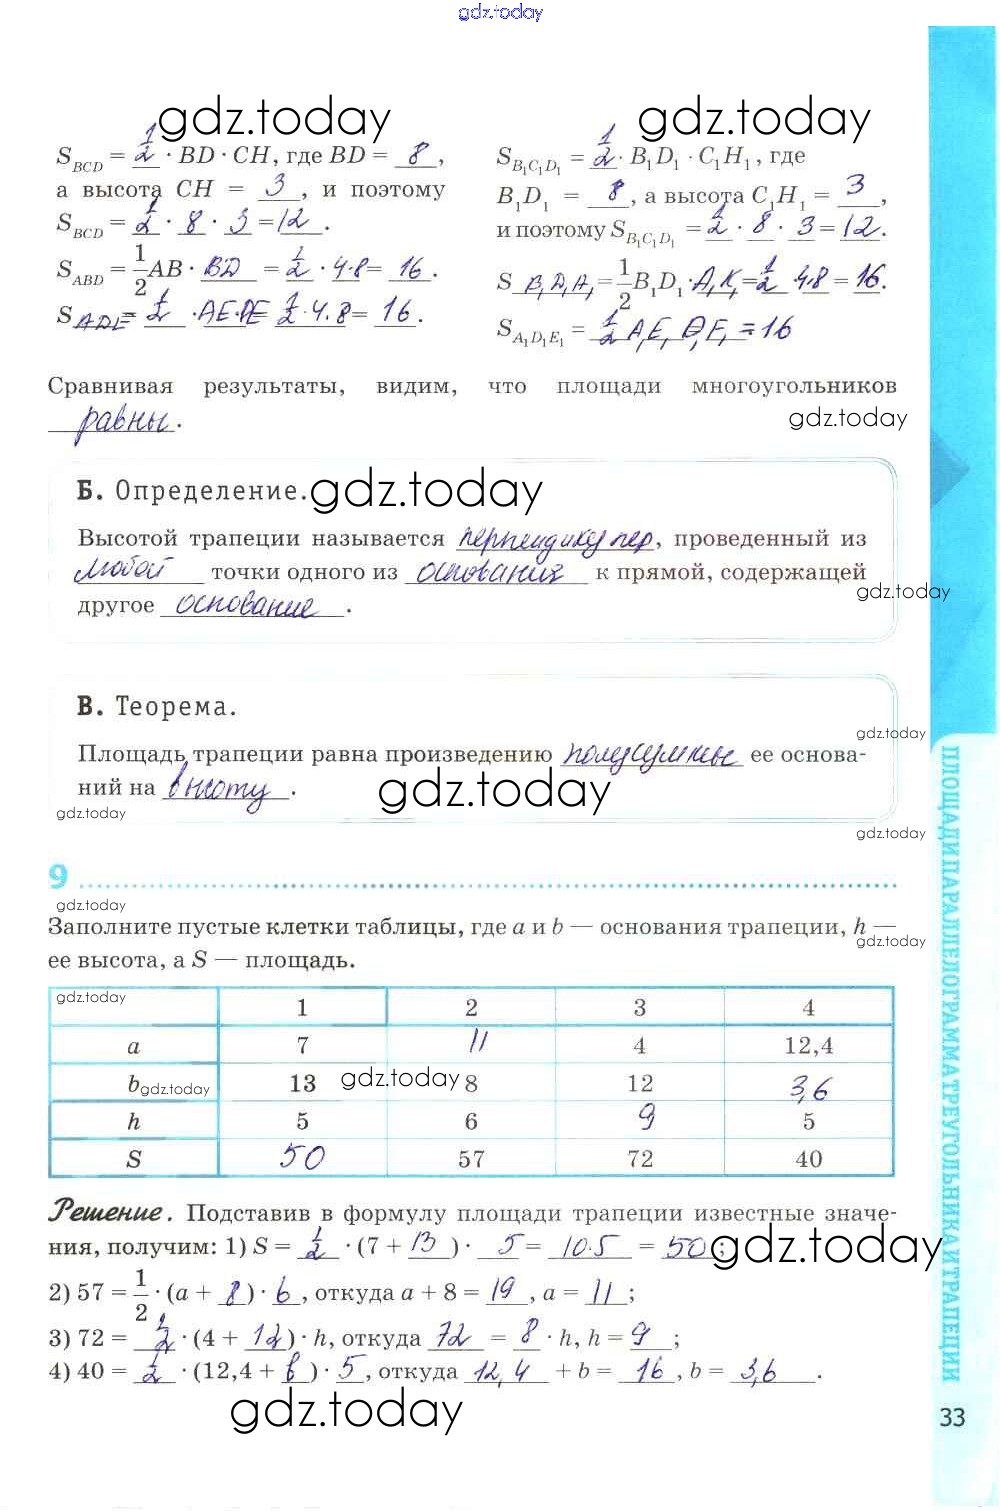 gdz.today
gdz.today gdz.today
S_BCD = 1/2 · BD · CH, где BD = 8,
а высота CH = 3, и поэтому
S_BCD = 1/2 · 8 · 3 = 12.
S_ABD = 1/2 AB · BD = 1/2 · 4·8 = 16.
S_ADE = 1/2 · AE·DE = 1/2 · 4·8 = 16.
S_B₁C₁D₁ = 1/2 · B₁D₁ · C₁H₁, где
B₁D₁ = 8, а высота C₁H₁ = 3,
и поэтому S_B₁C₁D₁ = 1/2 · 8 · 3 = 12.
S B₁D₁A₁ = 1/2 B₁D₁ · A₁K₁ = 1/2 4·8 = 16.
S_A₁D₁E₁ = 1/2 A₁E₁ D₁E₁ = 16
Сравнивая результаты, видим, что площади многоугольников
равны.
gdz.today
Б. Определение. gdz.today
Высотой трапеции называется перпендикуляр, проведенный из
любой точки одного из основания к прямой, содержащей
другое основание.
gdz.today
В. Теорема.
gdz.today
Площадь трапеции равна произведению полусуммы ее основа-
ний на высоту.
gdz.today
gdz.today
gdz.today
9
gdz.today
Заполните пустые клетки таблицы, где a и b — основания трапеции, h —
gdz.today
ее высота, а S — площадь.
gdz.today 1 2 3 4
a 7 11 4 12,4
b gdz.today 13 gdz.today 8 12 3,6
h 5 6 9 5
S 50 57 72 40
Решение. Подставив в формулу площади трапеции известные значе-
ния, получим: 1) S = 1/2 · (7 + 13) · 5 = 10·5 = 50;
gdz.today
2) 57 = 1/2 · (a + 8) · 6, откуда a + 8 = 19, a = 11;
3) 72 = 1/2 · (4 + 12) · h, откуда 72 = 8 · h, h = 9;
4) 40 = 1/2 · (12,4 + b) · 5, откуда 12,4 + b = 16, b = 3,6.
gdz.today
ПЛОЩАДИ ПАРАЛЛЕЛОГРАММА ТРЕУГОЛЬНИКА И ТРАПЕЦИИ
33